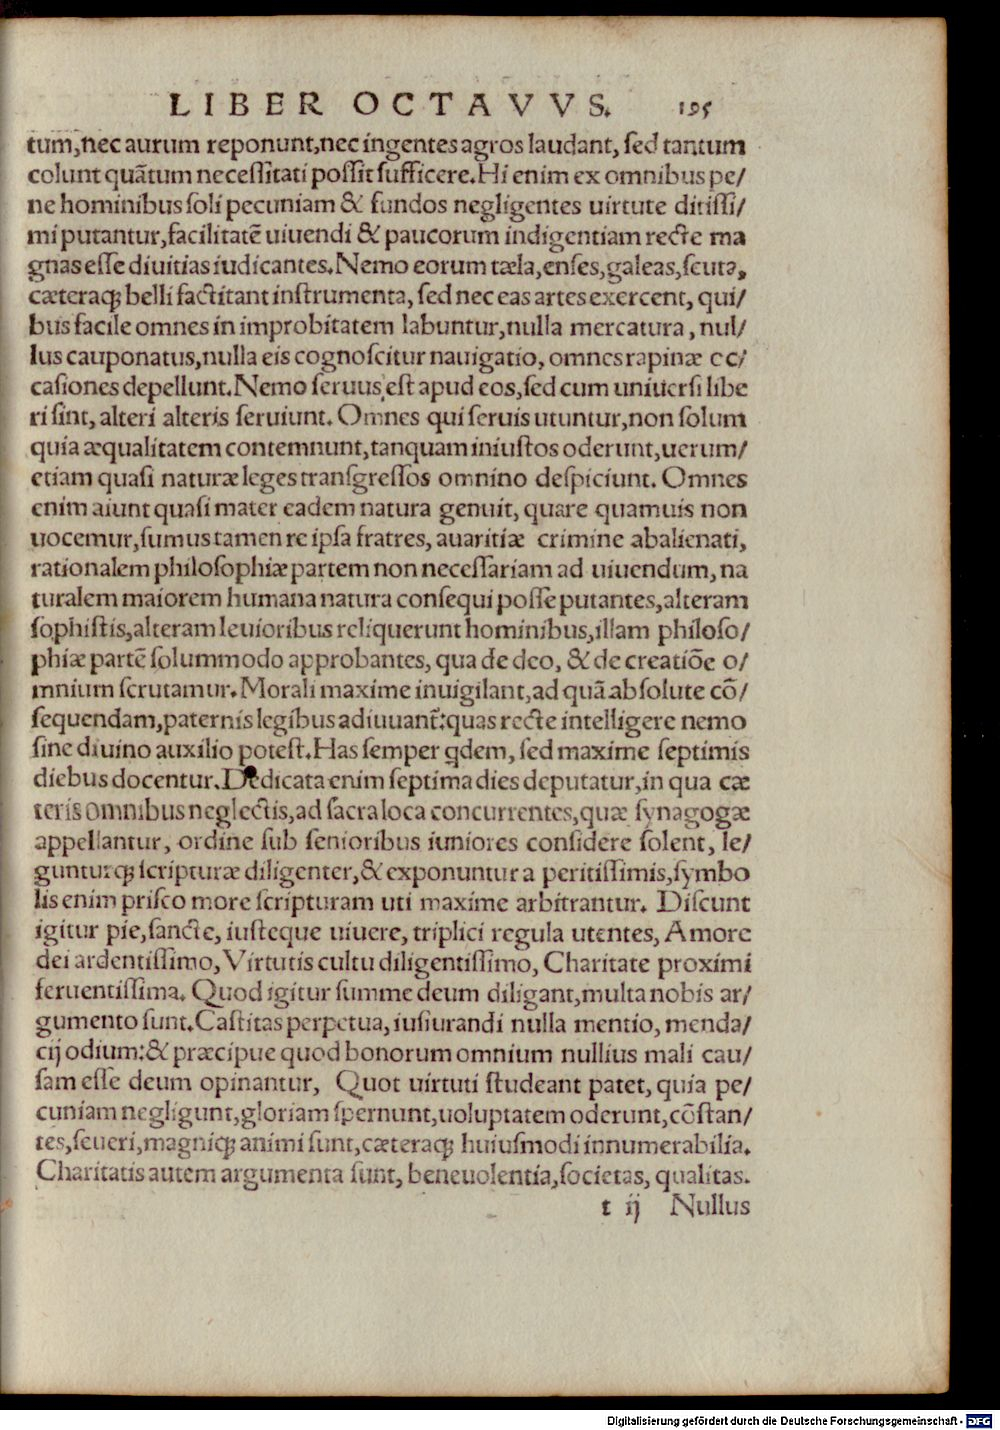 LIBER OCTAVVS. 195
tum, nec aurum reponunt, nec ingentes agros laudant, ſed tantum
colunt quãtum neceſſitati poſſit ſufficere. Hi enim ex omnibus pe/
ne hominibus ſoli pecuniam & fundos negligentes uirtute ditiſſi/
mi putantur, facilitatẽ uiuendi & paucorum indigentiam recte ma
gnas eſſe diuitias iudicantes. Nemo eorum tæla, enſes, galeas, ſcuta,
cæteraq; belli factitant inſtrumenta, ſed nec eas artes exercent, qui/
bus facile omnes in improbitatem labuntur, nulla mercatura, nul/
lus cauponatus, nulla eis cognoſcitur nauigatio, omnes rapinæ oc/
caſiones depellunt. Nemo ſeruus eſt apud eos, ſed cum uniuerſi libe
ri ſint, alteri alteris ſeruiunt. Omnes qui ſeruis utuntur, non ſolum
quia æqualitatem contemnunt, tanquam iniuſtos oderunt, uerum/
etiam quaſi naturæ leges tranſgreſſos omnino deſpiciunt. Omnes
enim aiunt quaſi mater eadem natura genuit, quare quamuis non
uocemur, ſumus tamen re ipſa fratres, auaritiæ crimine abalienati,
rationalem philoſophiæ partem non neceſſariam ad uiuendum, na
turalem maiorem humana natura conſequi poſſe putantes, alteram
ſophiſtis, alteram leuioribus reliquerunt hominibus, illam philoſo/
phiæ partẽ ſolummodo approbantes, qua de deo, & de creatiõe o/
mnium ſcrutamur. Morali maxime inuigilant, ad quã abſolute cõ/
ſequendam, paternis legibus adiuuant᷑: quas recte intelligere nemo
ſine diuino auxilio poteſt. Has ſemper qdem, ſed maxime ſeptimis
diebus docentur. Dedicata enim ſeptima dies deputatur, in qua cæ
teris omnibus neglectis, ad ſacra loca concurrentes, quæ ſynagogæ
appellantur, ordine ſub ſenioribus iuniores conſidere ſolent, le/
gunturq; ſcripturæ diligenter, & exponuntur a peritiſſimis, ſymbo
lis enim priſco more ſcripturam uti maxime arbitrantur. Diſcunt
igitur pie, ſancte, iuſteque uiuere, triplici regula utentes, Amore
dei ardentiſſimo, Virtutis cultu diligentiſſimo, Charitate proximi
feruentiſſima. Quod igitur ſumme deum diligant, multa nobis ar/
gumento ſunt. Caſtitas perpetua, iuſiurandi nulla mentio, menda/
cij odium: & præcipue quod bonorum omnium nullius mali cau/
ſam eſſe deum opinantur, Quot uirtuti ſtudeant patet, quia pe/
cuniam negligunt, gloriam ſpernunt, uoluptatem oderunt, cõſtan/
tes, ſeueri, magniq; animi ſunt, cæteraq; huiuſmodi innumerabilia.
Charitatis autem argumenta ſunt, beneuolentia, ſocietas, qualitas.
t ij Nullus
Digitalisierung gefördert durch die Deutsche Forschungsgemeinschaft - DFG